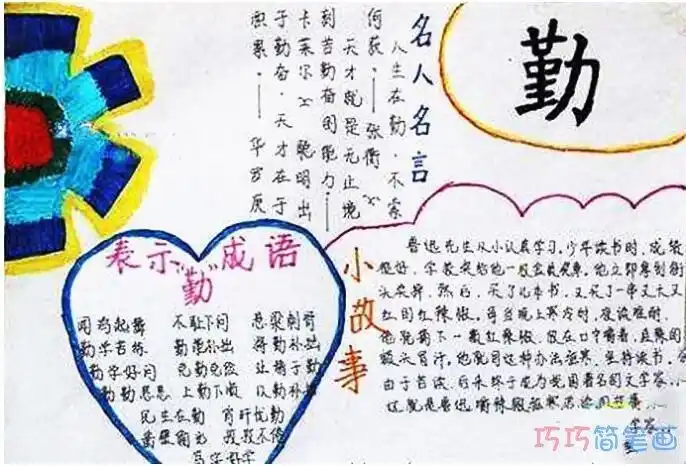 勤
名人名言
人生在勤,不索
何获。——张衡
天才就是无止境
刻苦勤奋的能力——
卡莱尔 聪明出
于勤奋,天才在于
积累。——华罗庚
表示"勤"成语
闻鸡起舞 不耻下问 悬梁刺
勤学苦练 勤能补拙 将勤补拙
勤学好问 克勤克俭 业精于勤
勤勤恳恳 上勤下顺 以勤补拙
民生在勤 宵旰忧勤
凿壁偷光 孜孜不倦
小故事
鲁迅先生从小认真学习。少年读书时,成绩
很好,学校奖给他一枚金质奖章,他立即拿到街
头卖掉,然后,买了几本书,又买了一串又大又
红的红辣椒。每当晚上寒冷时,夜读难耐,
他就摘下一颗红辣椒,放在口中嚼着,直辣的
额头冒汗,他就用这种办法驱寒,坚持读书,
由于苦读,后来终于成为我国著名的文学家
这就是鲁迅嚼辣椒驱寒苦读的故事
巧巧简笔画